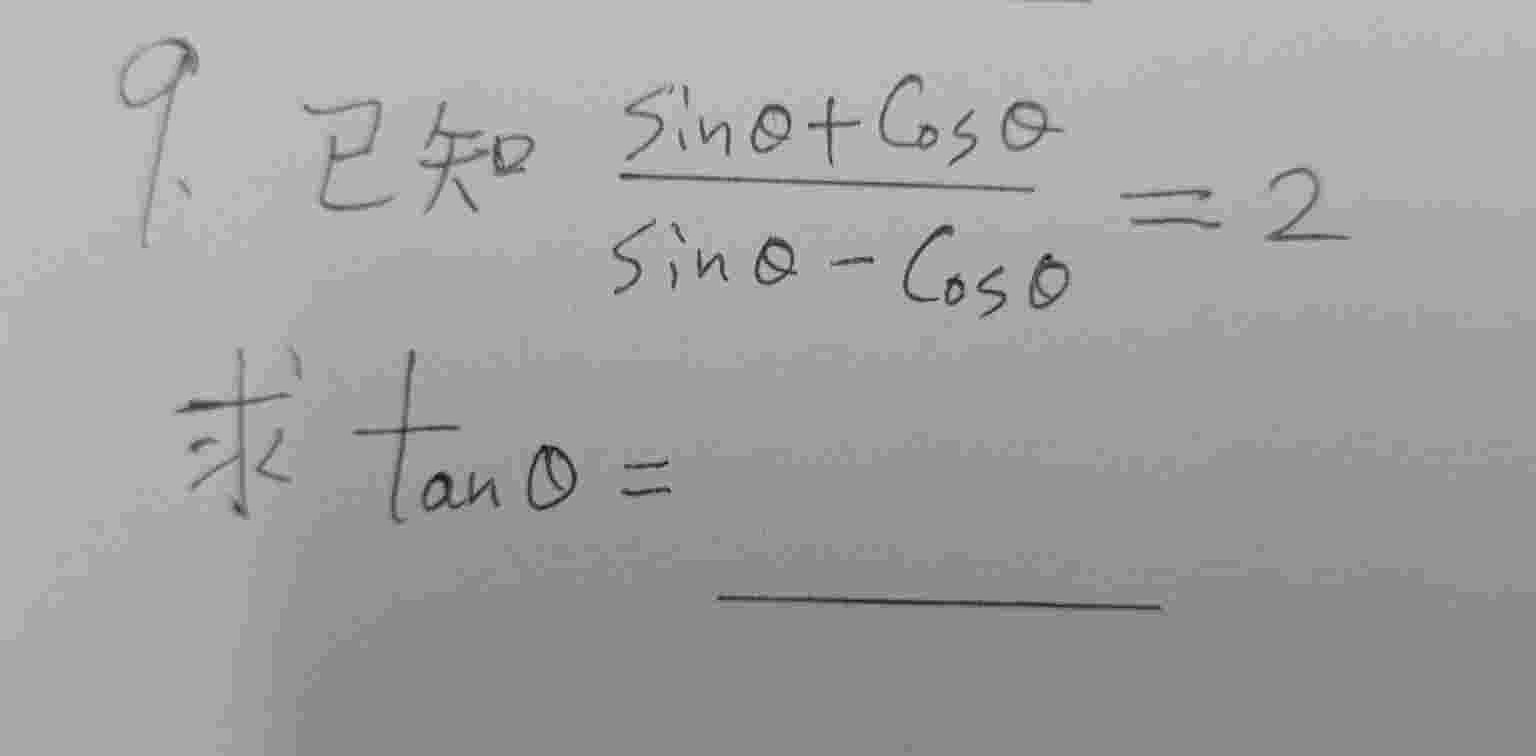 9. 已知 (sinθ+Cosθ)/(sinθ-Cosθ) = 2
求 tanθ = ______